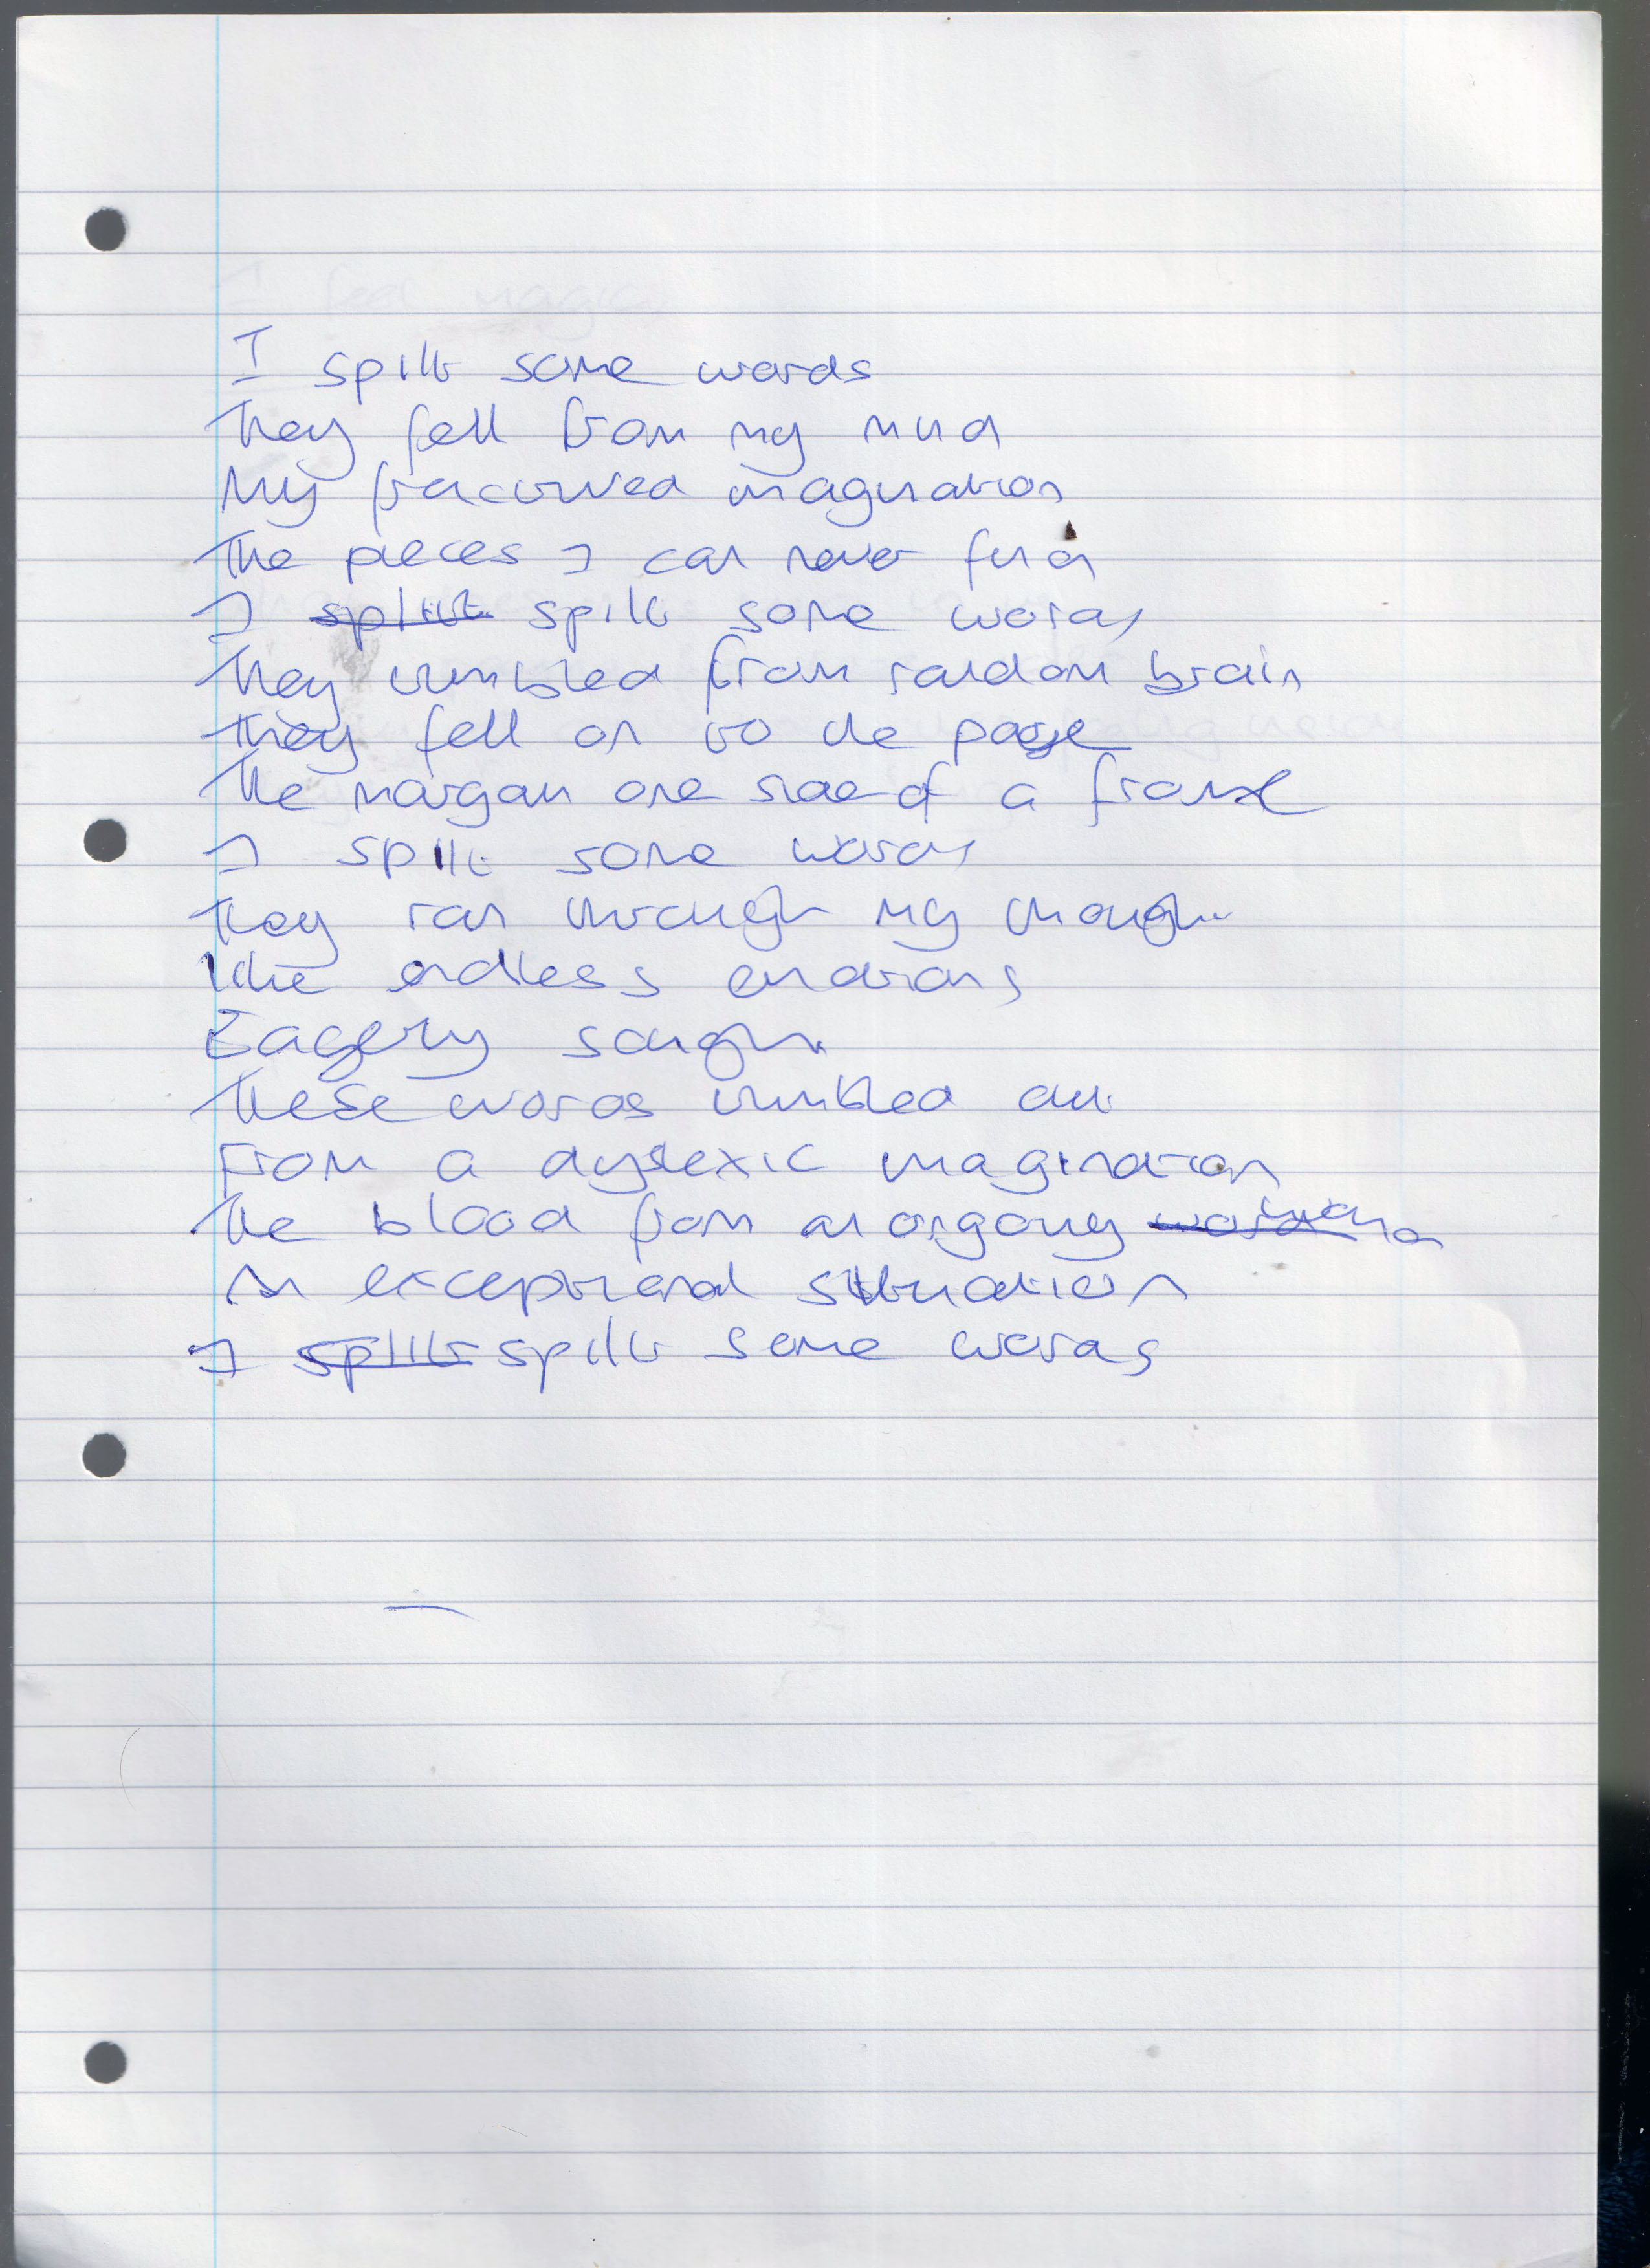 I spilt some words
They fell from my mind
My fractured imagination
The pieces I can never find
I split spilt some words
They tumbled from random brain
They fell on to the page
The margam one side of a frame
I spilt some words
They ran through my though
like endless emotions
Eagerly sought
These words tumbled out
From a dyslexic imagination
The blood from an ongoing
An exceptional situation
I split spilt some words